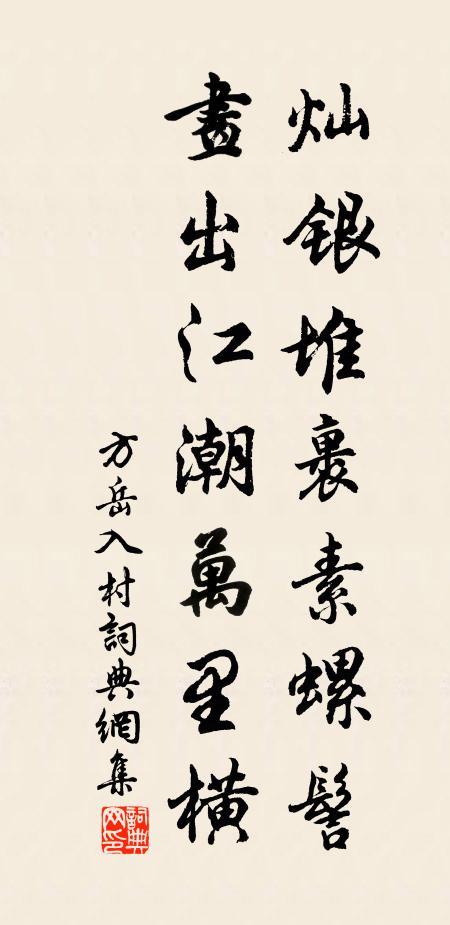 灿银堆裹素螺髻
畫出江潮萬里橫
方岳入村詞典網集
詞典网印